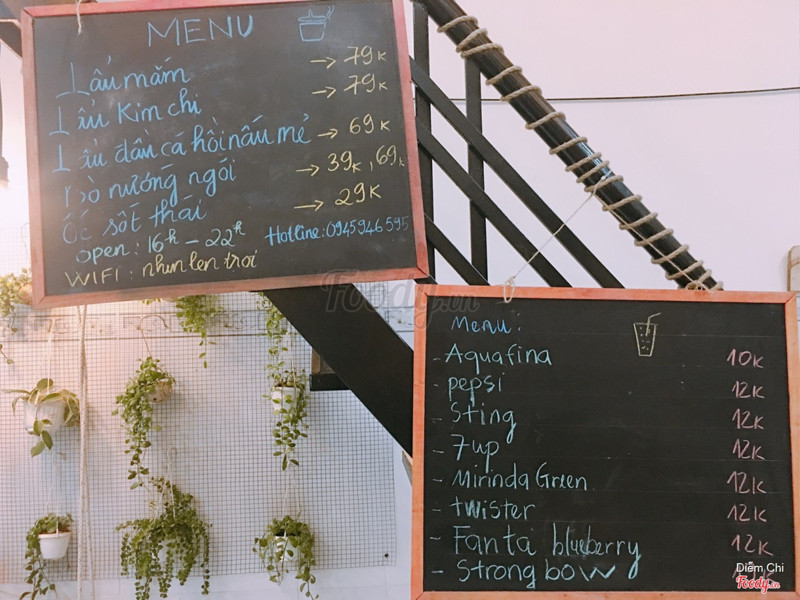 MENU
Lẩu mắm → 79K
Lẩu Kim chi → 79K
Lẩu đầu cá hồi nấu mẻ → 69K
Bò nướng ngói → 39K, 69K
Ốc sốt thái → 29K
open: 16h - 22h Hotline: 0945946595
WIFI: nhun len troi
Foody.vn
Menu:
- Aquafina 10K
- pepsi 12K
- Sting 12K
- 7up 12K
- Mirinda Green 12K
- twister 12K
- Fanta blueberry 12K
- Strong bow
Diễm Chi
Foody.vn